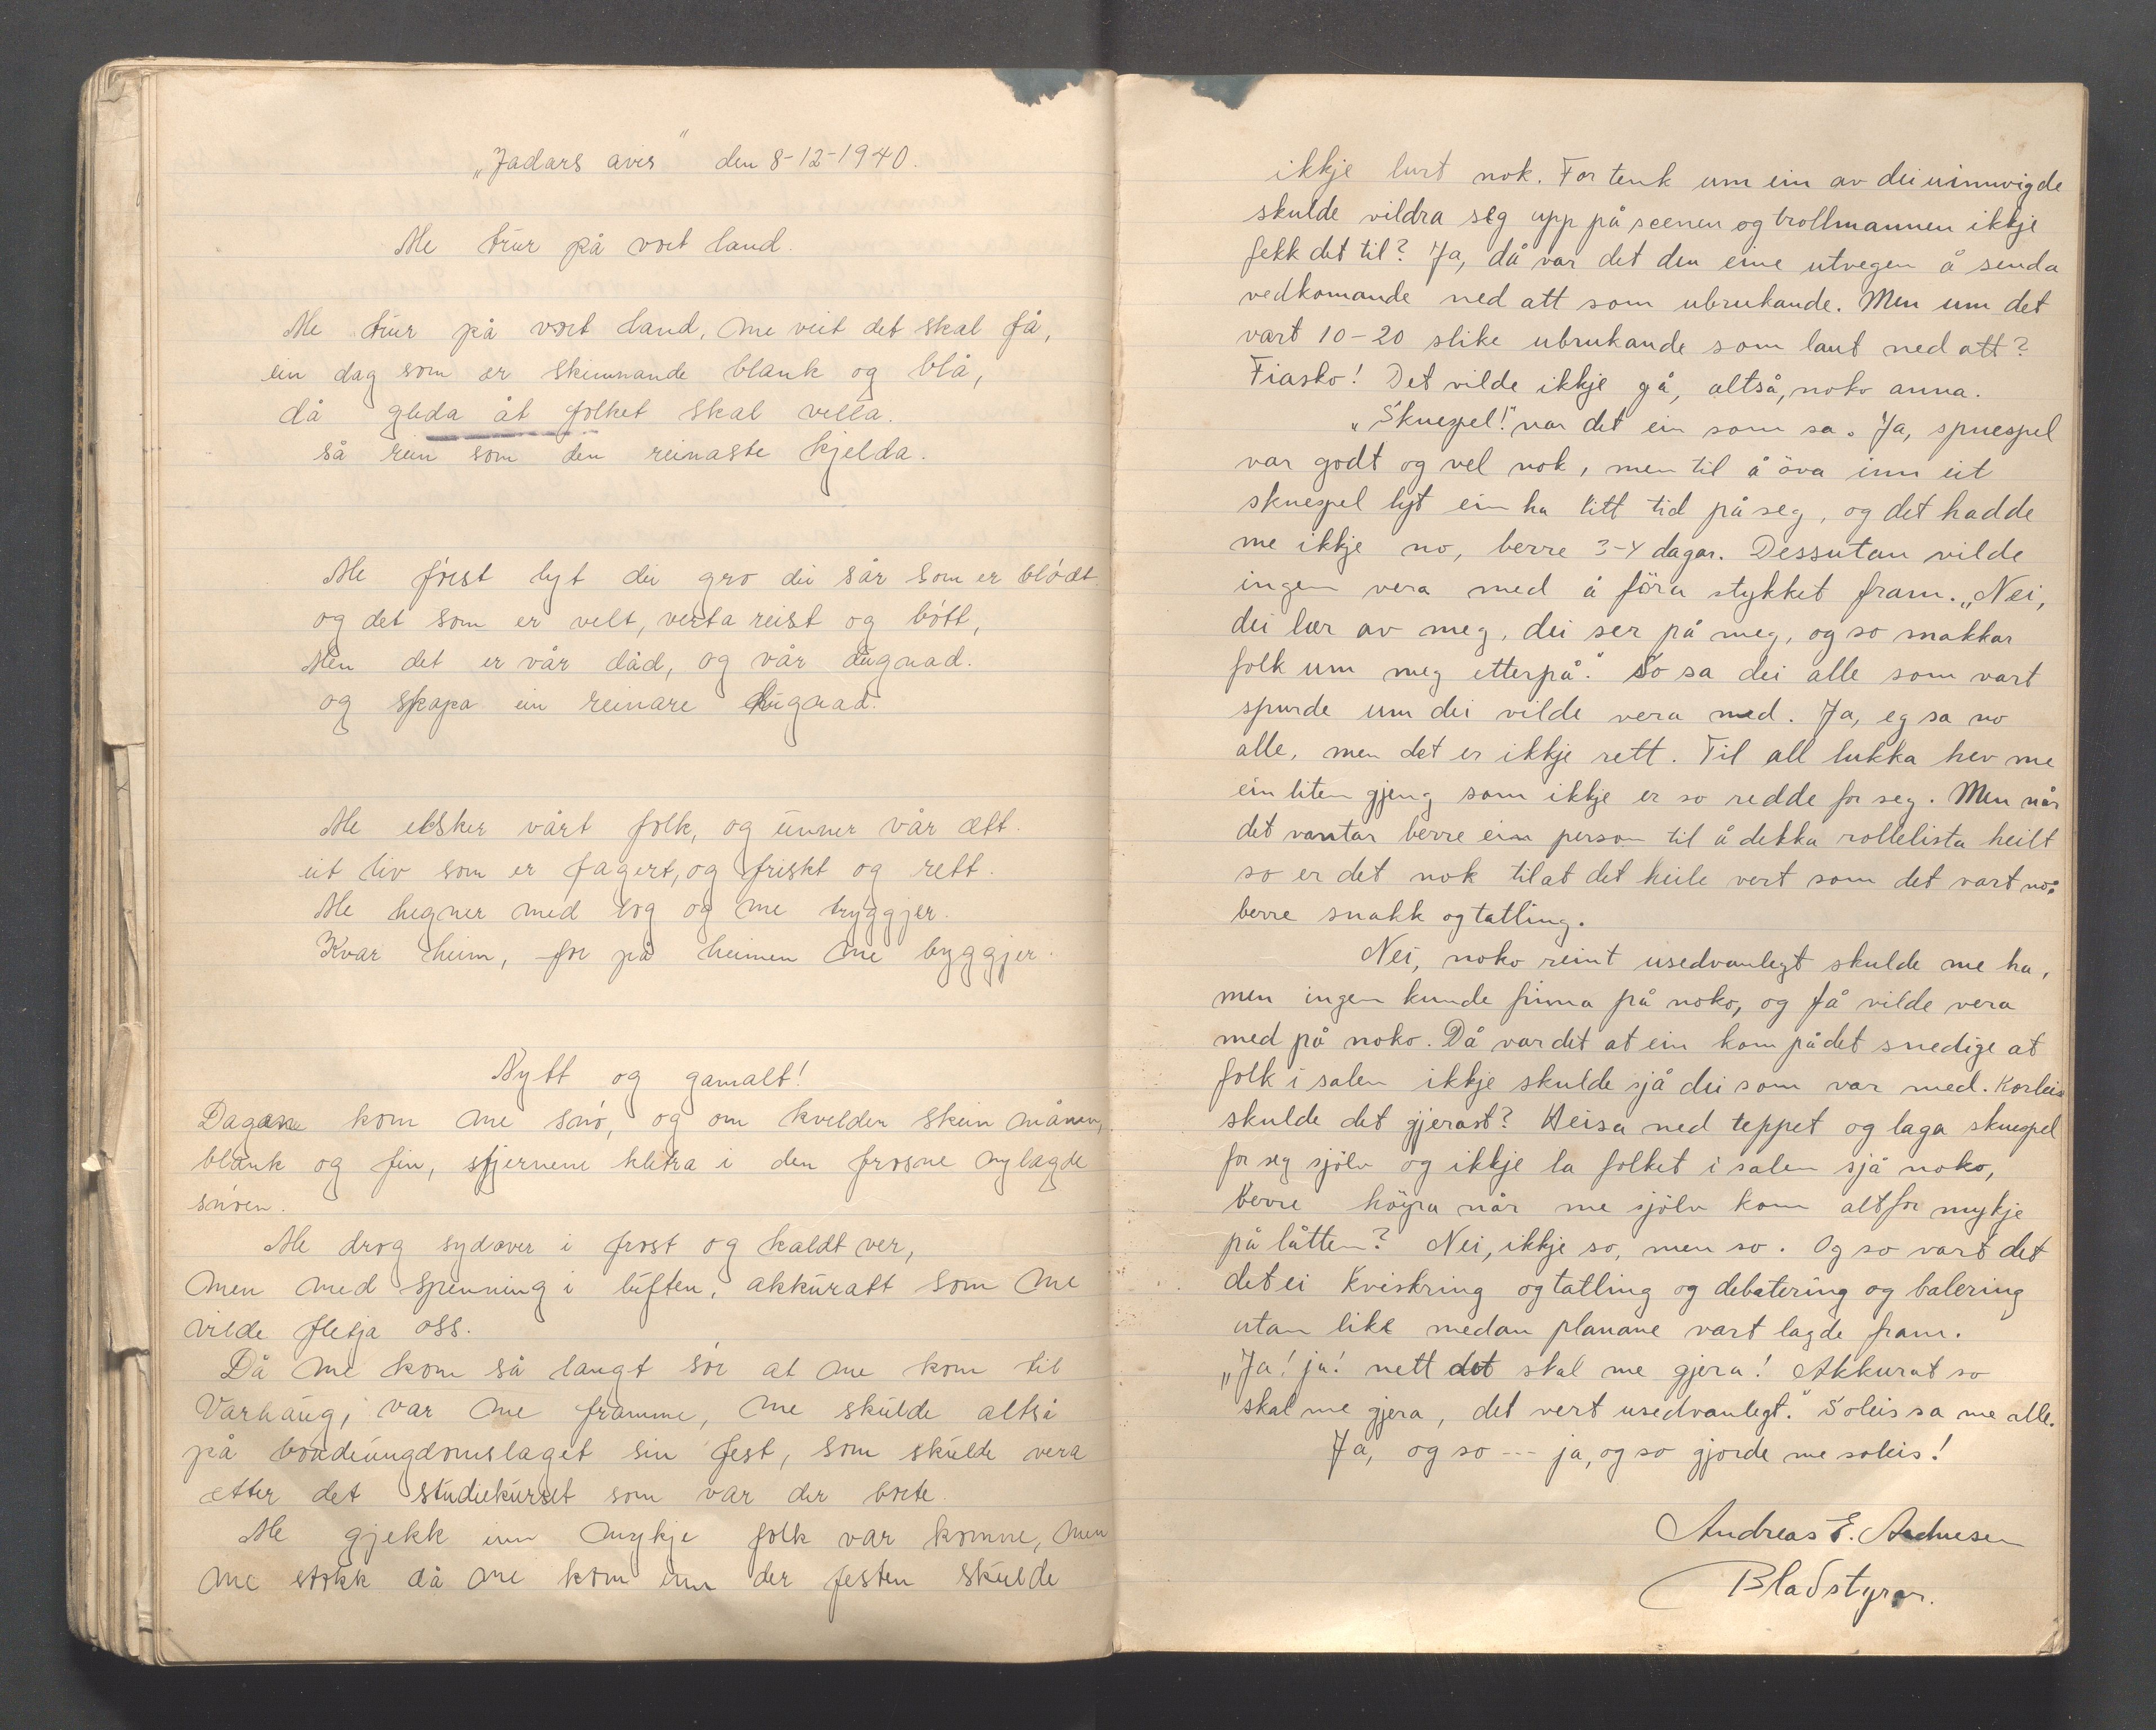 "Jadars avis" den 8-12-1940.
Me trur på vort land.
Me trur på vort land, me veit det skal få,
ein dag som er skinnande blank og blå,
då gleda åt folket skal vella.
så rein som den reinaste kjelda.
Me först lyt dei gro dei sår som er blödt.
og det som er velt, verta reist og bött,
Men det er vår dåd, og vår dugnad.
og skapa ein reinare hugnad.
Me elsker vårt folk, og unner vår ætt.
eit liv som er fagert, og friskt og rett.
Me hegner med log og me tryggjer.
Kvar heim, for på heimen me byggjer.
Nytt og gamalt!
Dagane kom me snö, og om kvelden skein månen,
blank og fin, stjernene klitra i den frosne nylagde
snöen.
Me drog sydover i frost og kaldt ver,
men med spenning i luften, akkuratt som me
vilde fletja oss.
Då me kom så langt sör at me kom til
Varhaug, var me framme, me skulde altså
på bondeungdomslaget sin fest, som skulde vera
etter det studiekurset som var der borte.
Me gjekk inn mykje folk var komne, men
me stokk då me kom inn der festen skulde
ikkje lurt nok. For tenk um ein av dei uinnvigde
skulde vildra seg upp på scenen og trollmannen ikkje
fekk det til? Ja, då var det den eine utvegen å senda
vedkomande ned att som ubrukande. Men um det
vart 10-20 slike ubrukande som laut ned att?
Fiasko! Det vilde ikkje gå, altså, noko anna.
"Skuespel!" var det ein som sa. Ja, spuespel
var godt og vel nok, men til å öva inn eit
skuespel lyt ein ha litt tid på seg, og det hadde
me ikkje no, berre 3-4 dagar. Dessutan vilde
ingen vera med å föra stykket fram. "Nei,
dei lær av meg, dei ser på meg, og so snakkar
folk um meg etterpå." So sa dei alle som vart
spurde um dei vilde vera med. Ja, eg sa no
alle, men det er ikkje rett. Til all lukka hev me
ein liten gjeng som ikkje er so redde for seg. Men når
det vantar berre ein person til å dekka rollelista heilt
so er det nok til at det heile vert som det vart no:
berre snakk og tatling.
Nei, noko reint usedvanlegt skulde me ha,
men ingen kunde finna på noko, og få vilde vera
med på noko. Då var det at ein kom på det snedige at
folk i salen ikkje skulde sjå dei som var med. Korleis
skulde det gjerast? Heisa ned teppet og laga skuespel
for seg sjölv og ikkje la folket i salen sjå noko,
berre höyra når me sjölv kom altfor mykje
på låtten? Nei, ikkje so, men so. Og so vart det
det ei kviskring og tatling og debatering og balering
utan like medan planane vart lagde fram.
"Ja! ja! nett det skal me gjera! Akkurat so
skal me gjera, det vert usedvanlegt." Soleis sa me alle.
Ja, og so --- ja, og so gjorde me soleis!
Andreas E.
Bladstyrar.